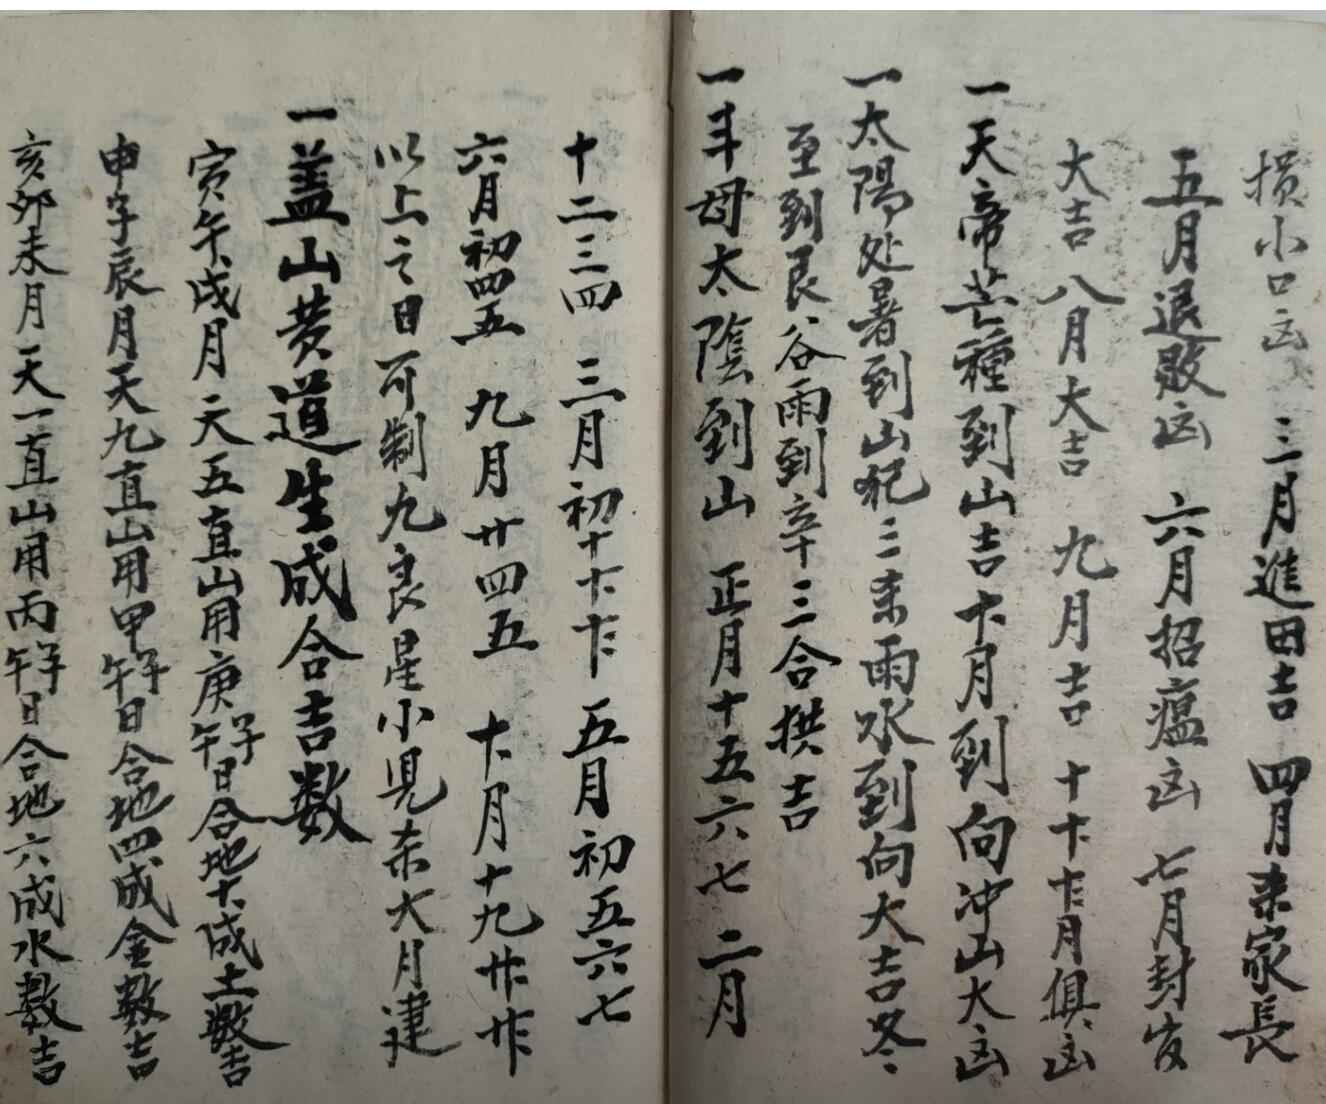 损小口凶 三月進田吉 四月来家長
五月退敗凶 六月招瘟凶 七月封官
大吉 八月大吉 九月吉 十 十一 十二月俱凶
一天帝芒種到山吉 十一月到向冲山大凶
一太陽处暑到山犯三杀雨水到向大吉冬
至到艮谷雨到辛三合拱吉
一斗母太陰到山 正月十五六七 二月
十二三四 三月初十十一十二 五月初五六七
六月初四五 九月廿四五 十一月十九廿廿一
以上之日可制九良星小児杀大月建
一盖山黄道生成合吉数
寅午戌月天五直山用庚子午日合地十成土数吉
申子辰月天九直山用甲子午日合地四成金数吉
亥卯未月天一直山用丙子午日合地六成水数吉